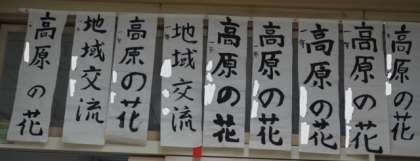 高原の花
地域交流
高原の花
地域交流
高原の花
高原の花
高原の花
高原の花
高原の花